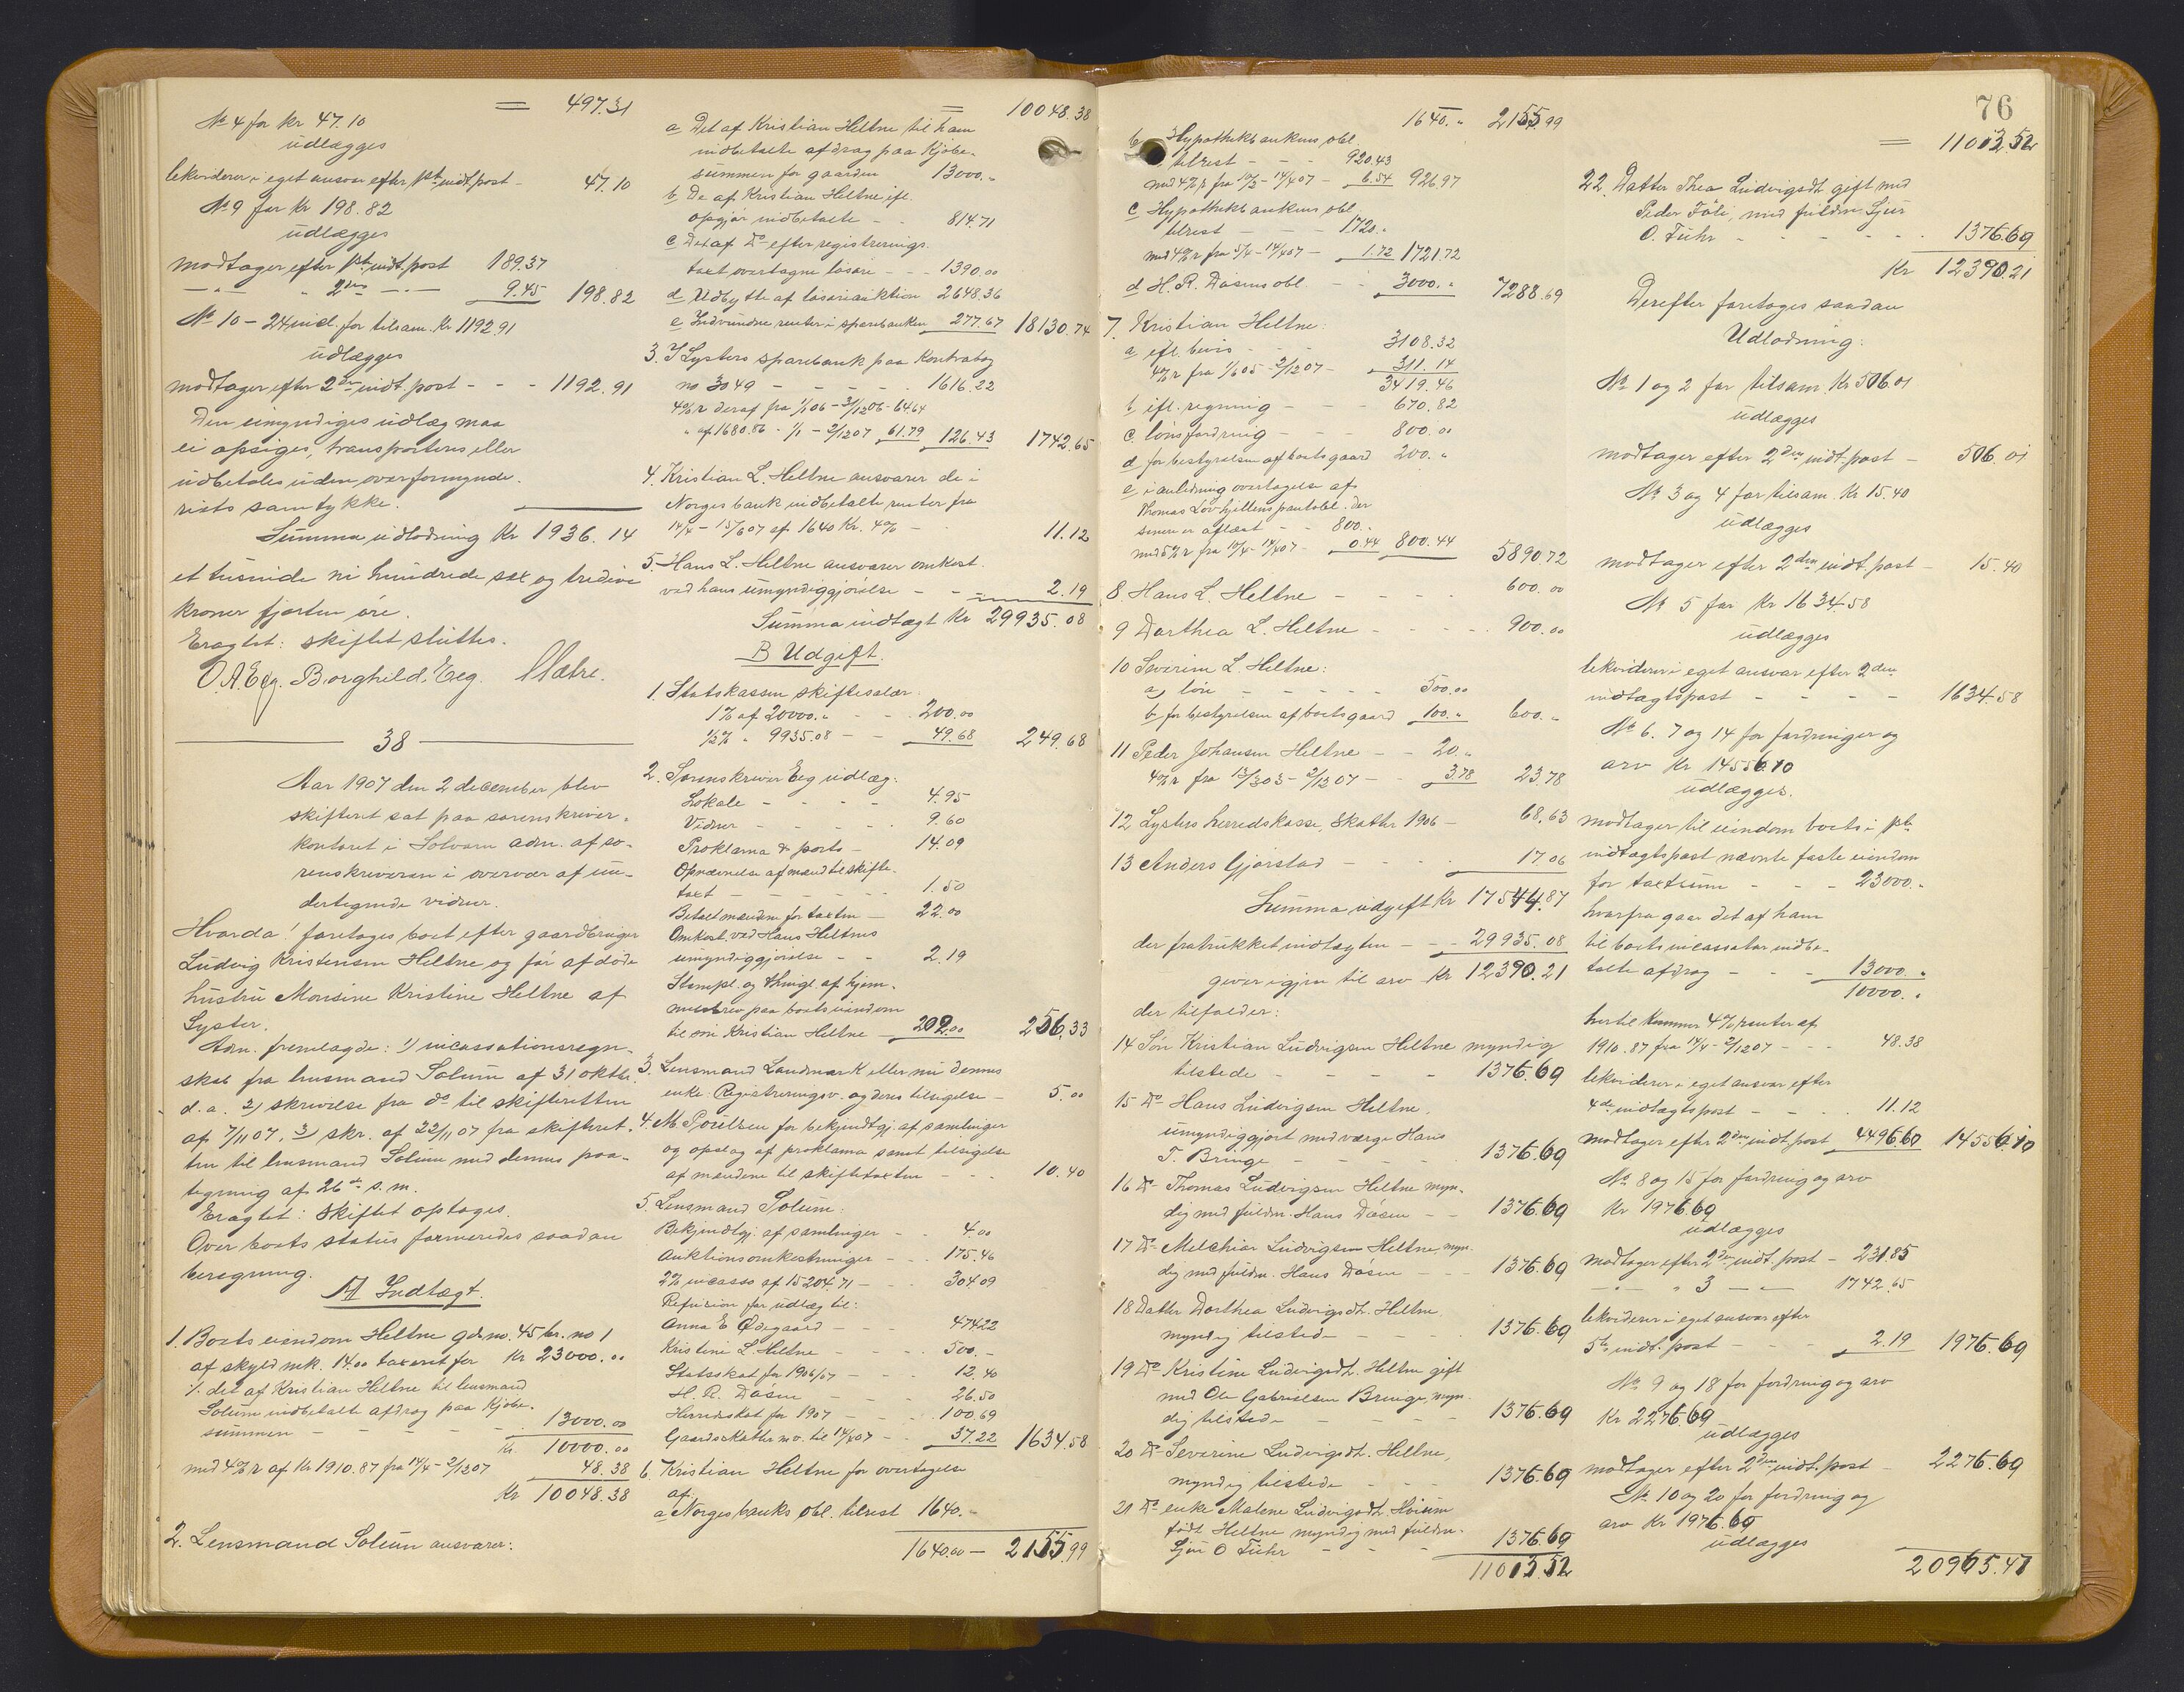 = 497.31
No 4 for Kr 47.10
udlægges
lekviderer i eget ansvar efter 1ste indt. post - 47.10
No 9 for Kr 198.82
udlægges
modtager efter 1ste indt. post 189.37
—„— „ 2den —„— 9.45 198.82
No 10 - 24 incl. for tilsam. Kr 1192.91
udlægges
modtager efter 2den indt. post - - - 1192.91
Den umyndiges udlæg maa
ei opsiges, transporteres eller
udbetales uden overformynde-
riets samtykke.
Summa udlodning Kr 1936.14
et tusinde ni hundrede sex og tredive
kroner fjorten øre.
Eragtet: skiftet sluttes.
O.A.Eeg. Borghild Eeg.
38
Aar 1907 den 2 december blev
skifteret sat paa sorenskriver-
kontoret i Solvorn adm. af so-
renskriveren i overvær af un-
dertegnede vidner.
Hvorda! foretoges boet efter gaardbruger
Ludvig Kristensen Heltne og før afdøde
hustru Monsine Kristine Heltne af
Lyster.
Adm. fremlagde: 1) incassationsregn-
skab fra lensmand Solum af 31 oktbr.
d.a. 2) skrivelse fra do til skifteretten
af 7/11 07, 3) skr. af 22/11 07 fra skifteret-
ten til lensmand Solum med dennes paa-
tegning af 26de s.m.
Eragtet: Skiftet optages.
Over boets status formeredes saadan
beregning.
A Indtægt.
1. Boets eiendom Heltne gdsno. 45 br. no 1
af skyld mk. 14.00 taxeret for Kr 23000.00
÷ det af Kristian Heltne til lensmand
Solum indbetalte afdrag paa Kjøbe-
summen - - - - 13000.00
Kr. 10000.00
med 4% r af Kr 1910.87 fra 14/4 - 2/12 07 48.38
Kr 10048.38
2. Lensmand Solum ansvarer:
= 10048.38
a Det af Kristian Heltne til ham
indbetalte afdrag paa Kjøbe-
summen for gaarden 13000.„
b De af Kristian Heltne ifl.
opgjør indbetalte - - 814.71
c Det af Do efter registrerings-
taxt overtagne løsøre - - - 1390.00
d Udbytte af løsøreauktion 2648.36
e Indvundne renter i sparebanken 277.67 18130.74
3. I Lysters sparebank paa Kontrabog
no 3049 - - - - - 1616.22
4% r deraf fra 1/1 06 - 31/12 06 - 64.64
„ af 1680.86 - 1/1 - 2/12 07 61.79 126.43 1742.65
4. Kristian L. Heltne ansvarer de i
Norges bank indbetalte renter fra
14/4 - 15/6 07 af 1640 Kr. 4% - 11.12
5. Hans L. Heltne ansvarer omkost.
ved hans umyndiggjørelse - - 2.19
Summa indtægt Kr 29935.08
B Udgift.
1. Statskassen skiftesalær:
1% af 20000.„ - - 200.00
1/2% „ 9935.08 - - 49.68 249.68
2. Sorenskriver Eeg udlæg:
Lokale - - - - 4.95
Vidner - - - - 9.60
Proklama & porto - 14.09
Opnævnelse af mænd til skifte-
taxt - - - - 1.50
Betalt mændene for taxten - 22.00
Omkost. ved Hans Heltnes
umyndiggjørelse - - 2.19
Stempl. og thingl. af hjem-
melsbrev paa boets eiendom
til søn Kristian Heltne - 202.00 256.33
3. Lensmand Landmark eller nu dennes
enke Registreringsv. og deres tilsigelse - 5.00
4. M. Pørelsen for bekjendtgj. af samlinger
og opslag af proklama samt tilsigelse
af mændene til skiftetaxten - - 10.40
5. Lensmand Solum:
Bekjendtgj. af samlinger - - 4.00
Auktionsomkostninger - - 175.46
2% incasso af 15204.71 - - 304.09
Refusion for udlæg til:
Anna E Ødegaard - - 474.22
Kristine L. Heltne - - 500.-
Statsskat for 1906/07 - - 12.40
H. R. Døsen - - 26.50
Herredsskat for 1907 - - 100.69
Gaardsskatter m.v. til 14/4 07 - - 37.22 1634.58
6. Kristian Heltne for overtagelse
af
a Norges banks obl. tilrest 1640.-
1640.00 - 2155.99
76
1640.„ 2155.99
b Hypothekbankens obl.
tilrest - - - 920.43
med 4% r fra 10/2 - 14/4 07 - 6.54 926.97
c Hypothekbankens obl.
tilrest - - - 1720.„
med 4% r fra 5/4 - 14/4 07 - 1.72 1721.72
d H. R. Døsens obl - - 3000.„ 7288.69
7. Kristian Heltne:
a ifl. bevis - - - 3108.32
4% r fra 1/6 05 - 2/12 07 - 311.14
3419.46
b ifl. regning - - - 670.82
c. lønsfordring - - - 800.00
d for bestyrelsen af boets gaard 200.„
e i anledning overtagelse af
Thomas Lovhjellens pantobl. der
senere er aflæst - - 800.„
med 5% r fra 10/4 - 14/4 07 - 0.44 800.44 5890.72
8 Hans L. Heltne - - - - 600.00
9 Dorthea L. Heltne - - - - 900.00
10 Severine L. Heltne:
a, løn - - - - - 500.00
b for bestyrelsen af boets gaard 100.„ 600.„
11 Peder Johansen Heltne - - 20.„
4% r fra 13/3 03 - 2/12 07 - - 3.78 23.78
12 Lysters herredskasse, Skatter 1906 - 68.63
13 Anders Gjørstad - - - - 17.06
Summa udgift Kr 17544.87
der fratrukket indtægten - - - 29935.08
giver igjen til arv Kr 12390.21
der tilfalder:
14 Søn Kristian Ludvigsen Heltne myndig
tilstede - - - - - 1376.69
15 Do Hans Ludvigsen Heltne,
umyndiggjort med værge Hans
T. Bringe - - - - - 1376.69
16 Do Thomas Ludvigsen Heltne myn-
dig med fuldm. Hans Døsen - - 1376.69
17 Do Melchior Ludvigsen Heltne, myn-
dig med fuldm. Hans Døsen - - - 1376.69
18 Datter Dorthea Ludvigsdt. Heltne
myndig tilstede - - - - 1376.69
19 Do Kristine Ludvigsdt. Heltne gift
med Ole Gabrielsen Bringe, myn-
dig tilstede - - - - 1376.69
20 Do Severine Ludvigsdt. Heltne,
myndig tilstede - - - - 1376.69
21 Do enke Malene Ludvigsdt. Hvium
født Heltne myndig med fuldm.
Sjur O Fuhr - - - - 1376.69
11013.52
= 11013.52
22. Datter Thea Ludvigsdt. gift med
Peder Føli, med fuldm. Sjur
O. Fuhr - - - - - 1376.69
Kr 12390.21
Derefter foretoges saadan
Udlodning:
No 1 og 2 for tilsam. Kr 506.01
udlægges
modtager efter 2den indt. post - 506.01
No 3 og 4 for tilsam. Kr 15.40
udlægges
modtager efter 2den indt. post - 15.40
No 5 for Kr 1634.58
udlægges
lekviderer i eget ansvar efter 2den
indtægtspost - - - - 1634.58
No 6. 7 og 14 for fordringer og
arv Kr 14556.10
udlægges.
modtager til eiendom boets i 1ste
indtægtspost nævnte faste eiendom
for taxtsum - - - 23000.„
hvorfra gaar det af ham
til boets incassator indbe-
talte afdrag - - - 13000.„
10000.„
hertil kommer 4% renter af
1910.87 fra 14/4 - 2/12 07 - - - 48.38
lekviderer i eget ansvar efter
4de indtægtspost - - - 11.12
modtager efter 2den indt. post 4496.60 14556.10
No 8 og 15 for fordring og arv
Kr 1976.69
udlægges
modtager efter 2den indt. post - 231.85
—„— „ 3 —„— 1742.65
lekviderer i eget ansvar efter
5te indt. post - - - 2.19 1976.69
No 9 og 18 for fordring og arv
Kr 2276.69
udlægges
modtager efter 2den indt. post - 2276.69
No 10 og 20 for fordring og
arv Kr 1976.69
udlægges
20965.47